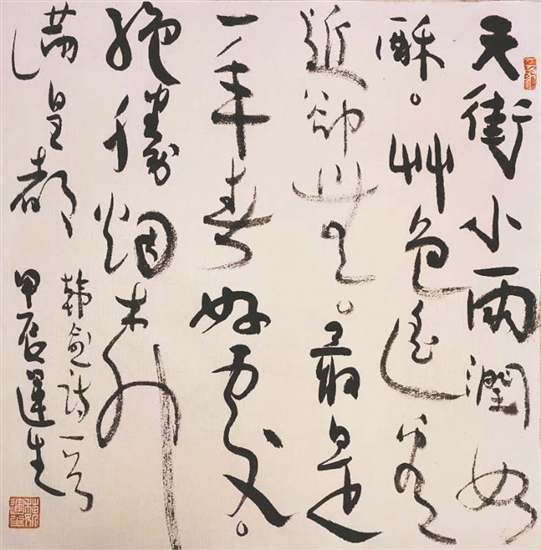 天街小雨潤如
酥。艸色遥看
近却無。最是
一年春好處。
絶勝烟柳
滿皇都
韓愈詩一首
甲辰 生